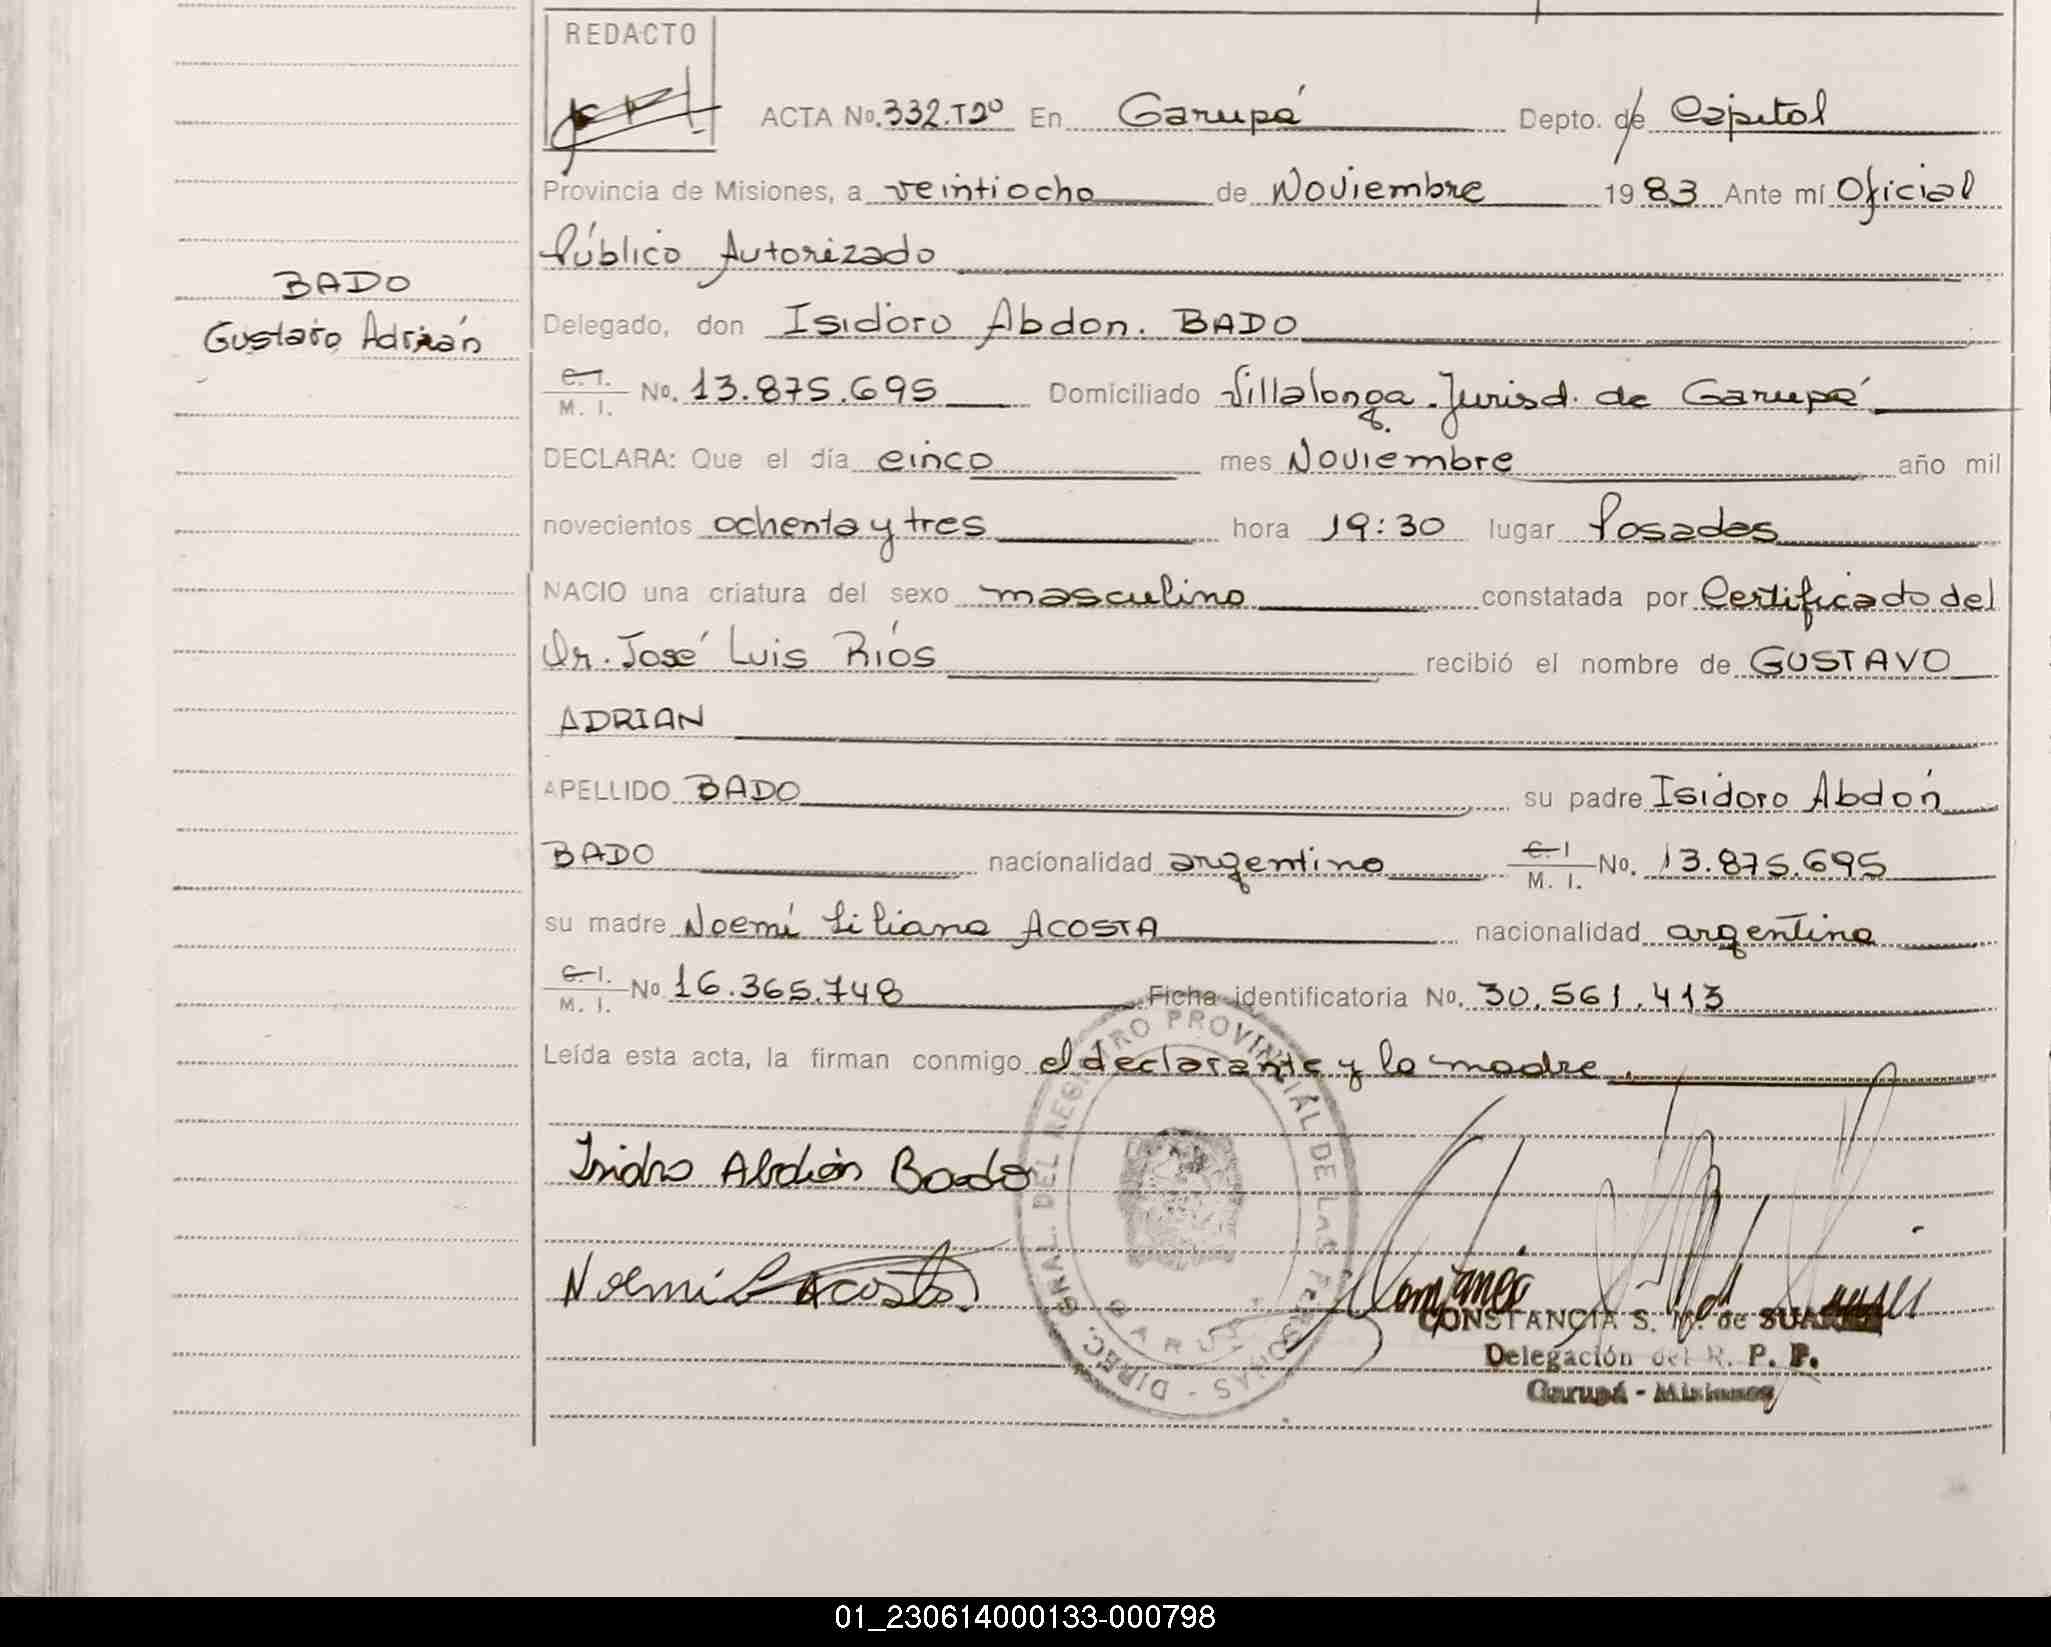 REDACTO
ACTA No. 332.T2º En Garupá Depto. de Capital
Provincia de Misiones, a veintiocho de Noviembre 1983 Ante mí Oficial
Público Autorizado
BADO
Gustavo Adrián
Delegado, don Isidoro Abdon. BADO
C. I.
M. I. No. 13.875.695 Domiciliado Villalonga. Jurisd. de Garupá
DECLARA: Que el día cinco mes Noviembre año mil
novecientos ochenta y tres hora 19:30 lugar Posadas
NACIO una criatura del sexo masculino constatada por Certificado del
Dr. José Luis Ríos recibió el nombre de GUSTAVO
ADRIAN
APELLIDO BADO su padre Isidoro Abdón
BADO nacionalidad argentino C. I
M. I. No. 13.875.695
su madre Noemí Liliana ACOSTA nacionalidad argentina
C. I.
M. I. No 16.365.748 Ficha identificatoria No. 30.561.413
Leída esta acta, la firman conmigo el declarante y la madre.
DIREC. GRAL. DEL REGISTRO PROVINCIAL DE LAS PERSONAS -
GARUPA
Isidro Abdón Bado
Noemí L Acosta
CONSTANCIA S. M. de SUAREZ
Delegación del R. P. P.
Garupá - Misiones
01_230614000133-000798